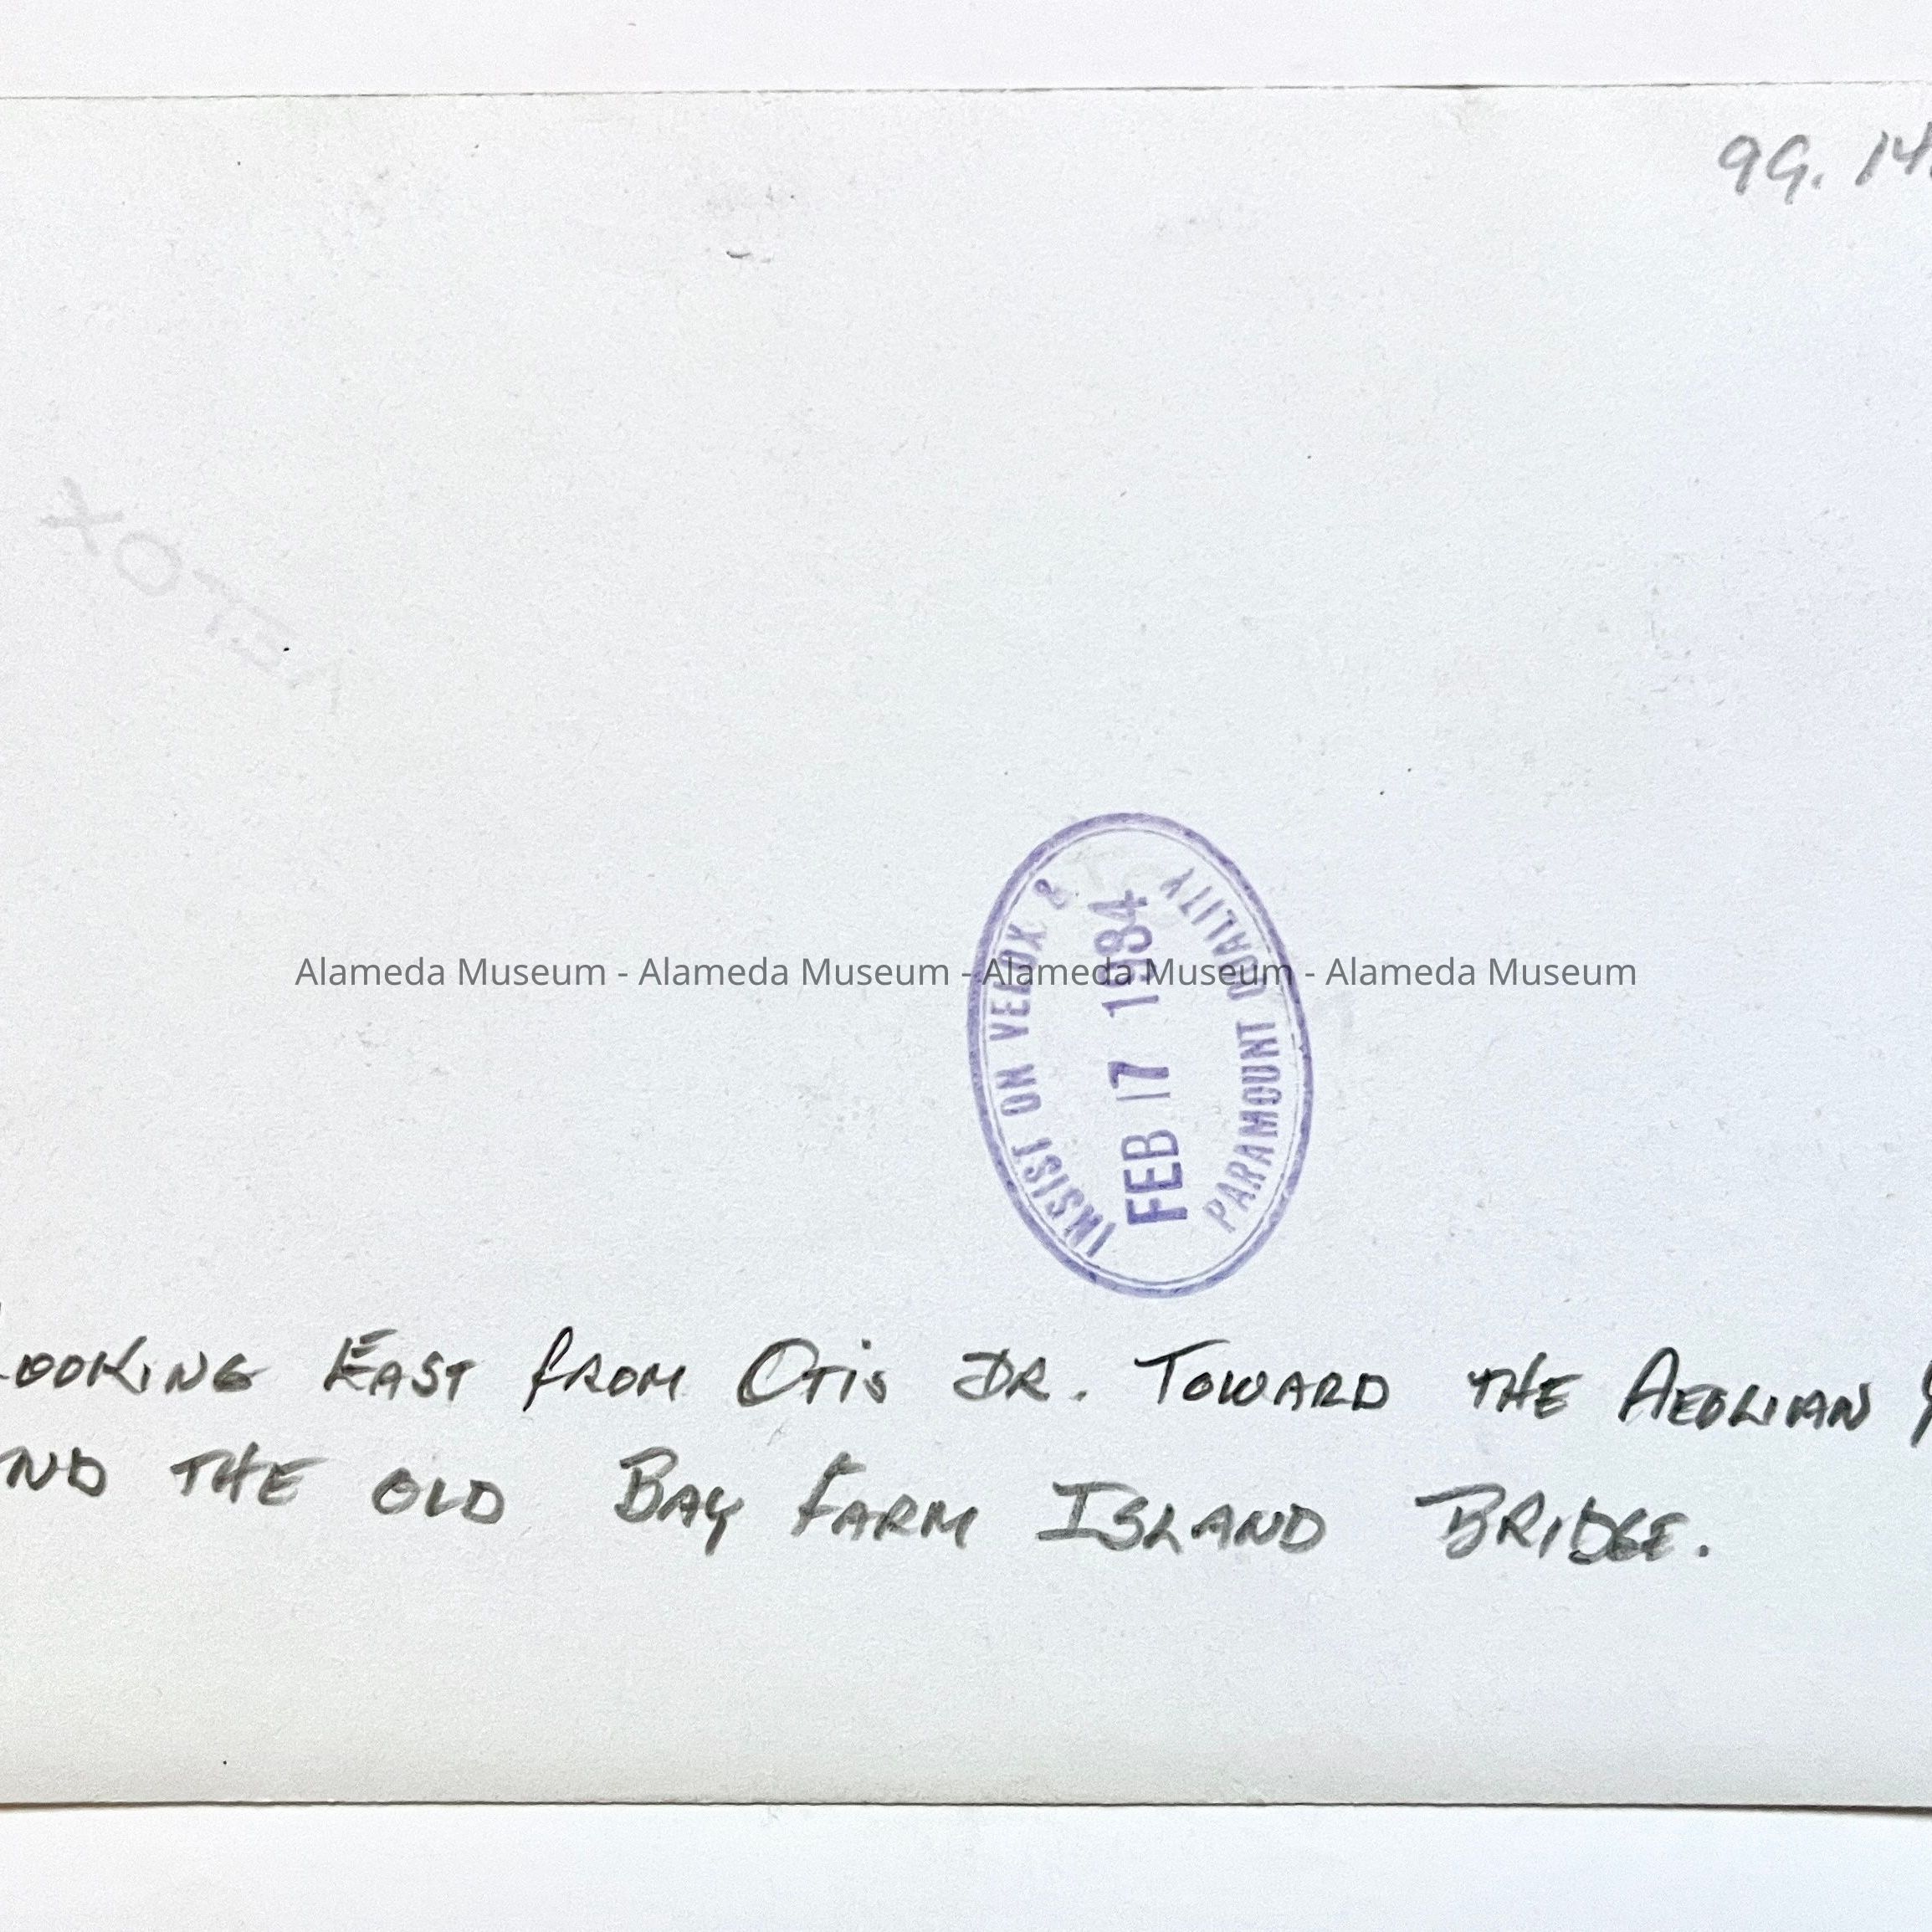 99. 14
INSIST ON VELOX &
FEB 17 1984
PARAMOUNT QUALITY
Alameda Museum - Alameda Museum - Alameda Museum - Alameda Museum
LOOKING EAST FROM OTIS DR. TOWARD THE AEOLIAN Y
ND THE OLD BAY FARM ISLAND BRIDGE.